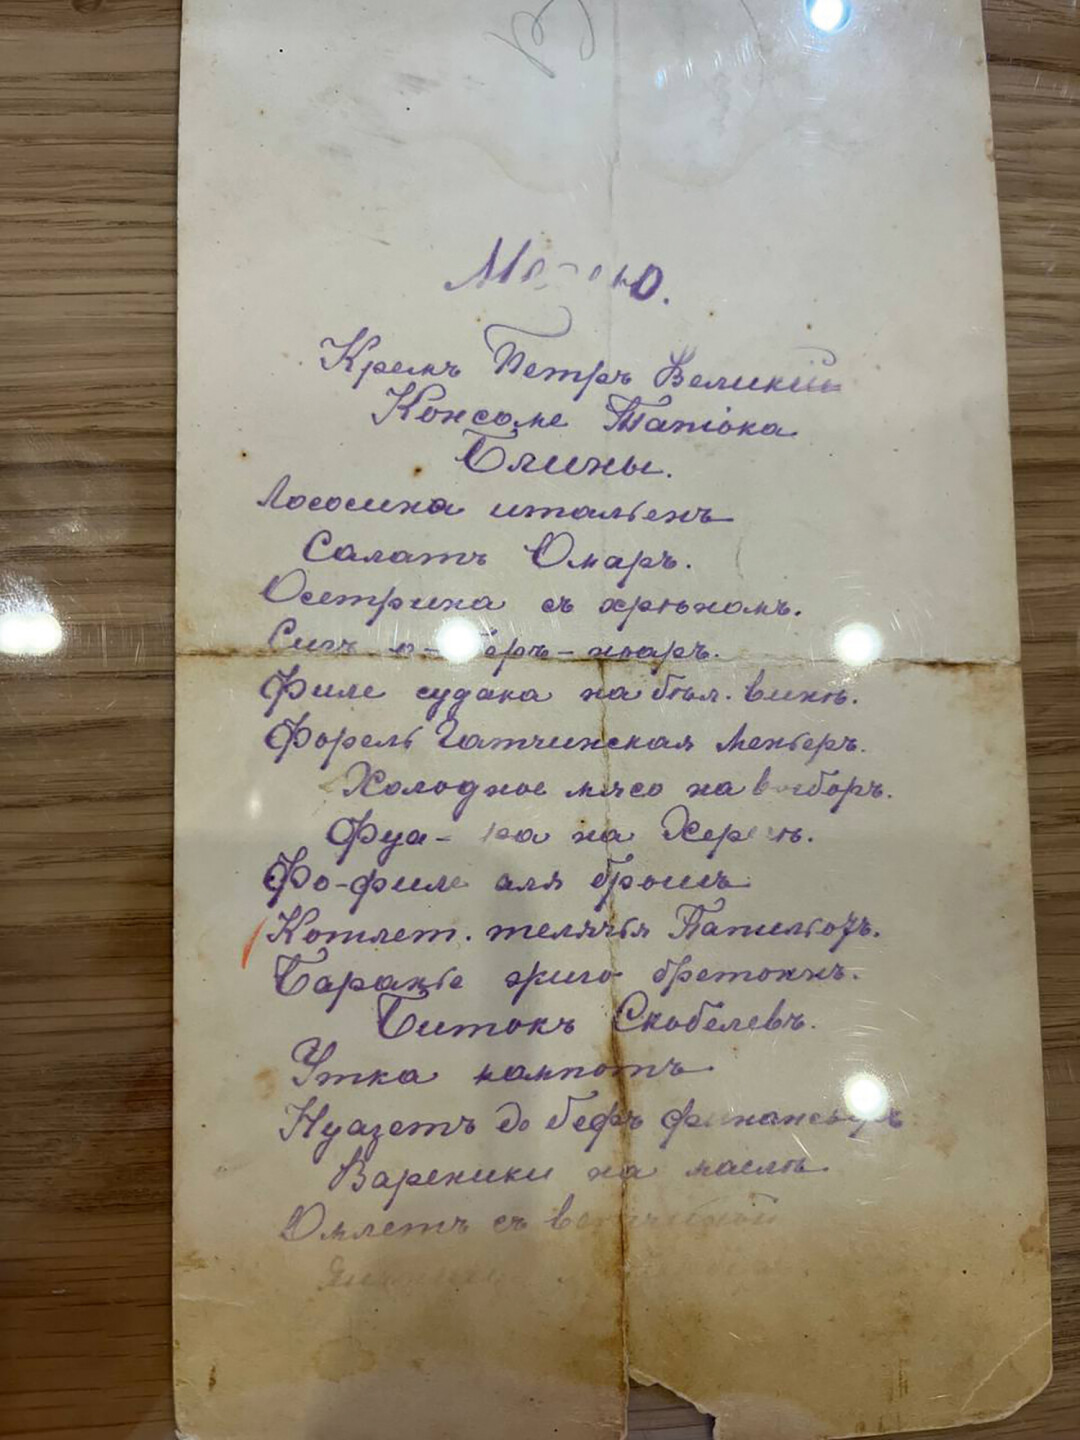 Кремъ Петръ Великій
Консоме Тапіока
Блины.
Лососина итальенъ
Салатъ Омаръ.
Осетрина съ хрѣномъ.
Сигъ о-беръ-ноаръ.
Филе судака на бѣл. винѣ.
Форель Гатчинская Меньеръ.
Холодное мясо на выборъ.
Фуа-гра на Хересѣ.
Фо-филе аля брошъ
Котлет. телячья Папильотъ.
Баранье жиго бретоннъ.
Битокъ Скобелевъ.
Утка компотъ
Нуазетъ де бефъ финансьеръ
Вареники на маслѣ.
Омлетъ съ ветчиной